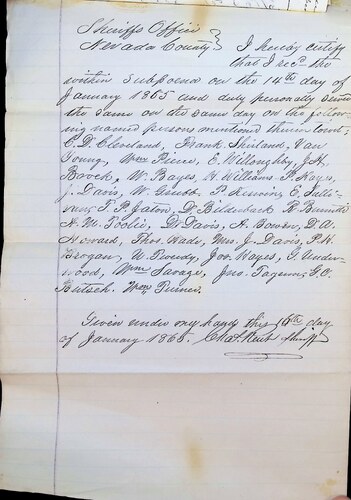 Sheriffs Office }
Nevada County } I hereby certify
that I recd the
within Subpoena on the 14th day of
January 1865 and duly personally served
the same on the same day on the follow-
ing named persons mentioned therein towit;
C. D. Cleveland, Frank Shirland, Van
Young, Wm Pierce, E. Willoughby, J. H.
W. Bayes, H. Williams. P. Hayes,
J. Davis, W. Grubb. P. E. Sulli-
van, T. P. D. Bilderback R.
N. W. Dr Davis, A. Bowen, D. A.
Howard, Thos. Wade, Mrs. J. Davis, P. H.
Brogan, W. Powdy, Jos. Hayes, G. Under-
wood, Wm Savage, Jno. G. C.
Wm Turner.
Given under my hand this 16th day
of January 1865. Chas. Kent Sheriff